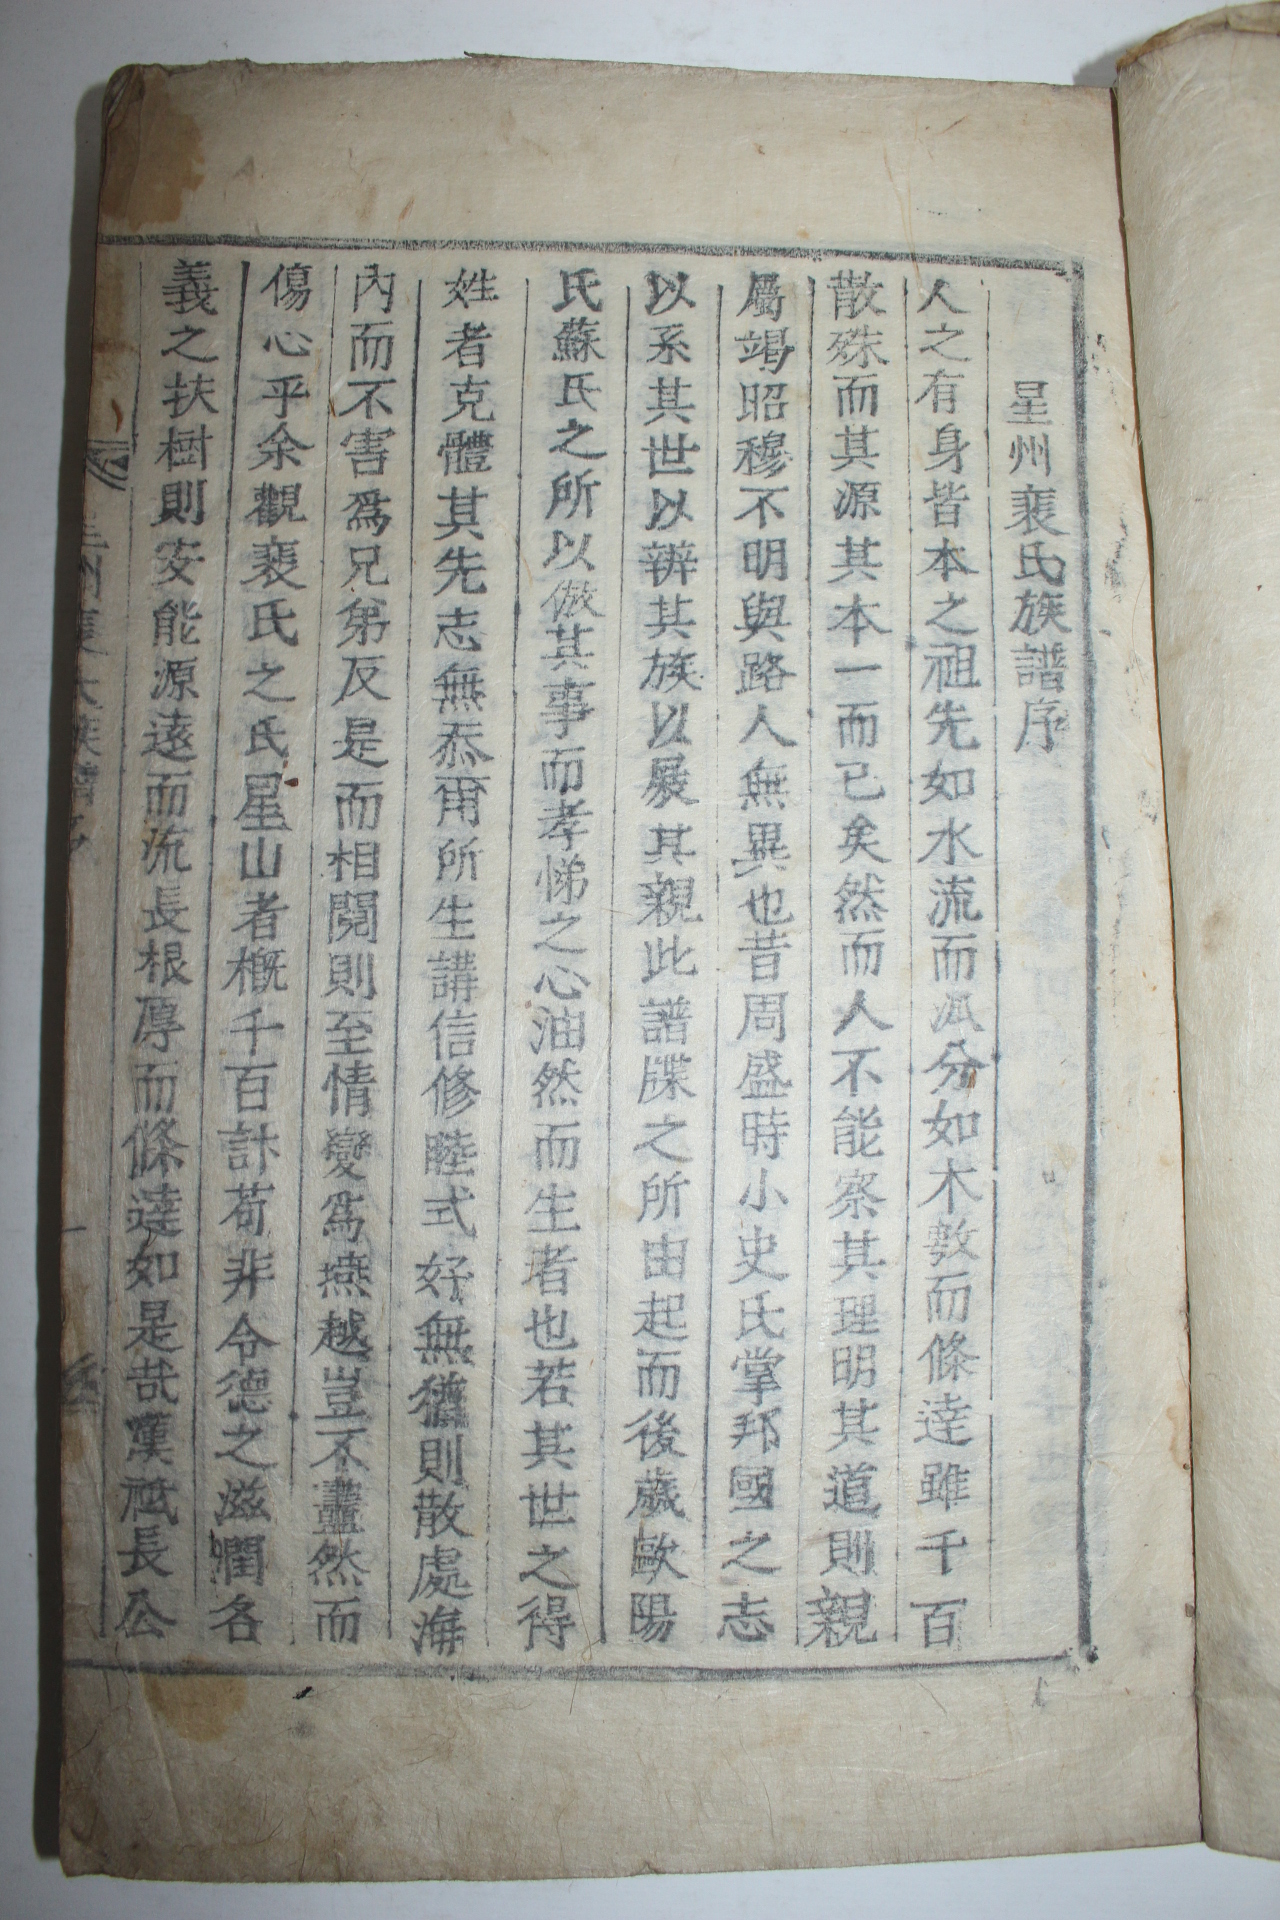 星州裵氏族譜序
人之有身皆本之祖先如水流而派分如木敷而條達雖千百
散殊而其源其本一而已矣然而人不能察其理明其道則親
屬竭昭穆不明與路人無異也昔周盛時小史氏掌邦國之志
以系其世以辨其族以展其親此譜牒之所由起而後歲歐陽
氏蘇氏之所以倣其事而孝悌之心油然而生者也若其世之得
姓者克體其先志無忝爾所生講信修睦式好無猶則散處海
內而不害爲兄弟反是而相鬩則至情變爲燕越豈不盡然而
傷心乎余觀裵氏之氏星山者槪千百計苟非令德之滋潤名
義之扶樹則安能源遠而流長根厚而條達如是哉漢祗長公